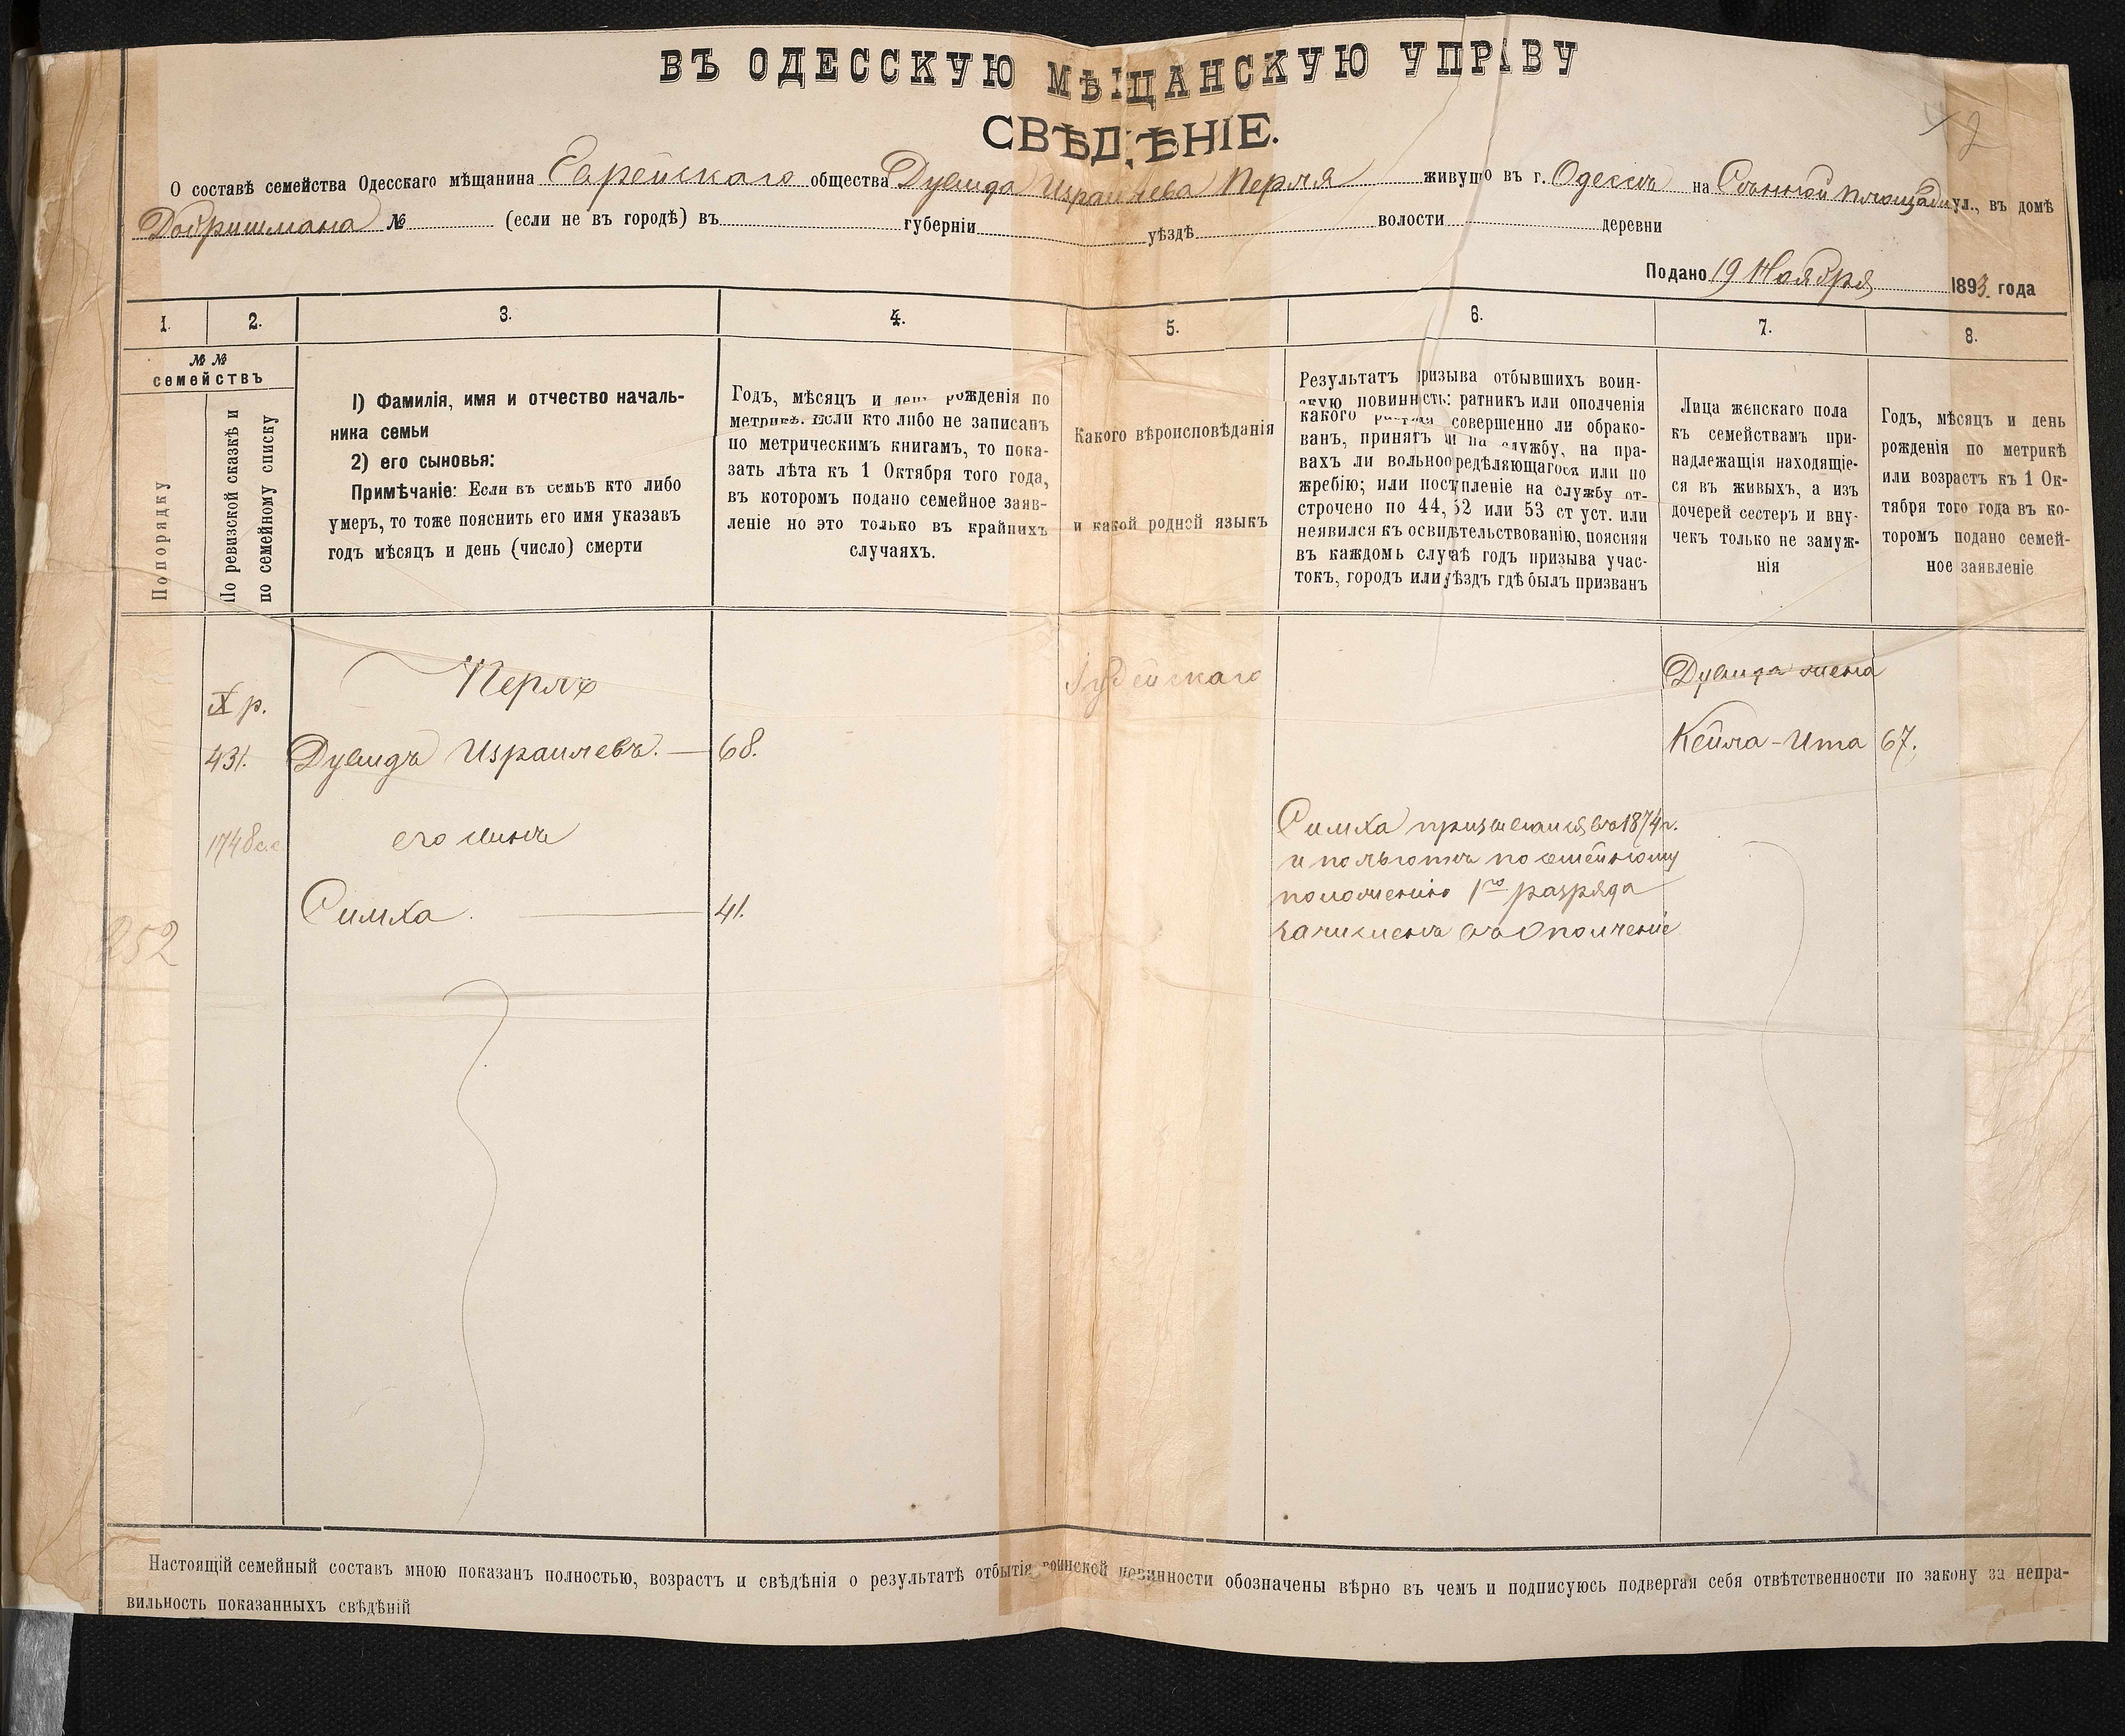 ВЪ ОДЕССКУЮ МѢЩАНСКУЮ УПРАВУ
СВѢДѢНІЕ.
2
О составѣ семейства Одесскаго мѣщанина Еврейскаго общества Дувида Израилева Перля живущ о въ г. Одессѣ на Сѣнной площади ул., въ домѣ
Добришмана № (если не въ городѣ) въ губерніи уѣздѣ волости деревни
Подано 19 Ноября 1893 года
1. 2. 3. 4. 5. 6. 7. 8.
№ №
семействъ
По порядку
По ревизской сказкѣ и
по семейному списку
1) Фамилія, имя и отчество началь-
ника семьи
2) его сыновья:
Примѣчаніе: Если въ семьѣ кто либо
умеръ, то тоже пояснить его имя указавъ
годъ мѣсяцъ и день (число) смерти
Годъ, мѣсяцъ и день рожденія по
метрикѣ. Если кто либо не записанъ
по метрическимъ книгамъ, то пока-
зать лѣта къ 1 Октября того года,
въ которомъ подано семейное заяв-
леніе но это только въ крайнихъ
случаяхъ.
Какого вѣроисповѣданія
и какой родной языкъ
Результатъ призыва отбывшихъ воин-
скую повинность: ратникъ или ополченія
какого разряда совершенно ли обрако-
ванъ, принятъ и на службу, на пра-
вахъ ли вольноопредѣляющагося или по
жребію; или поступленіе на службу от-
строчено по 44, 52 или 53 ст уст. или
неявился къ освидѣтельствованію, поясняя
въ каждомъ случаѣ годъ призыва учас-
токъ, городъ или уѣздъ гдѣ былъ призванъ
Лица женскаго пола
къ семействамъ при-
надлежащія находящіе-
ся въ живыхъ, а изъ
дочерей сестеръ и вну-
чекъ только не замуж-
нія
Годъ, мѣсяцъ и день
рожденія по метрикѣ
или возрастъ къ 1 Ок-
тября того года въ ко-
торомъ подано семей-
ное заявленіе
X р.
431.
1748 с.с.
252
Перль
Дувидъ Израилевъ. — 68.
его сынъ
Симха. — 41.
Іудейскаго
Симха призывался въ 1874 г.
и по льготѣ по семейному
положенію 1го разряда
зачисленъ въ Ополченіе
Дувида жена
Кейла-Ита 67.
Настоящій семейный составъ мною показанъ полностью, возрастъ и свѣдѣнія о результатѣ отбытія воинской повинности обозначены вѣрно въ чемъ и подписуюсь подвергая себя отвѣтственности по закону за непра-
вильность показанныхъ свѣдѣній